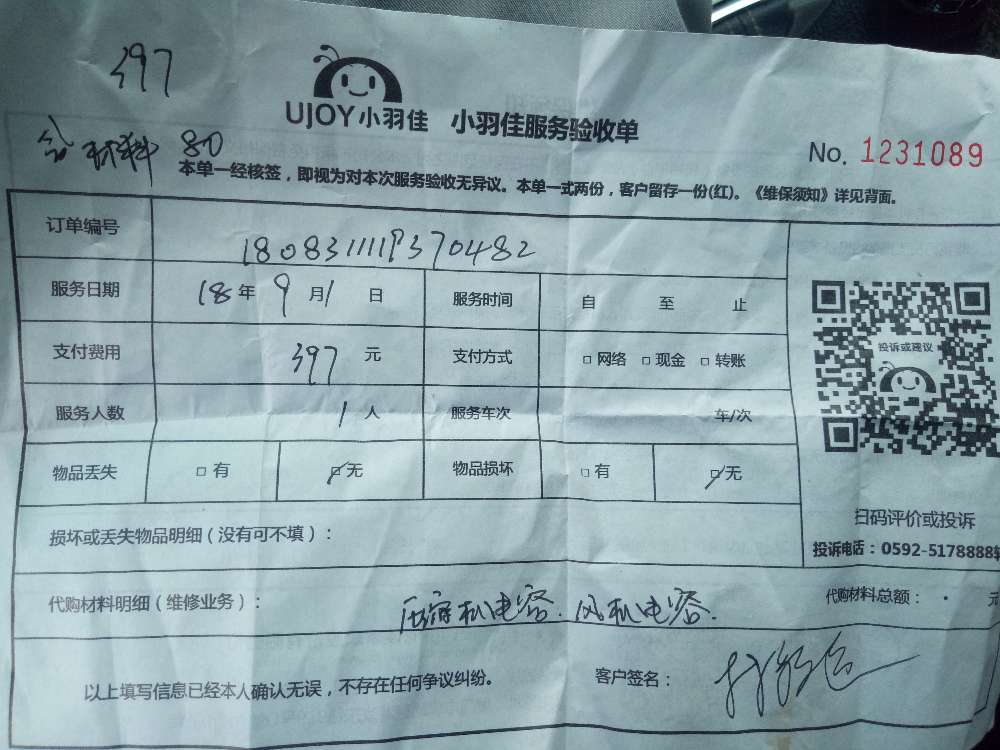 397
UJOY小羽佳 小羽佳服务验收单
含材料 80
No. 1231089
本单一经核签，即视为对本次服务验收无异议。本单一式两份，客户留存一份(红)。《维保须知》详见背面。
订单编号
服务日期 18年9月1日 服务时间 自 至 止
投诉或建议
支付费用 397元 支付方式 □网络 □现金 □转账
服务人数 1人 服务车次 车/次
物品丢失 □有 □无 物品损坏 □有 □无
扫码评价或投诉
损坏或丢失物品明细（没有可不填）：
投诉电话：0592-5178888转
代购材料明细（维修业务）： 压缩机电容.风机电容. 代购材料总额： . 元
以上填写信息已经本人确认无误，不存在任何争议纠纷。 客户签名：